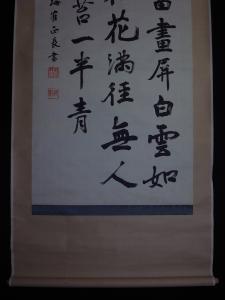 畫屏白雲如
花滿徑無人
苔一半青
書